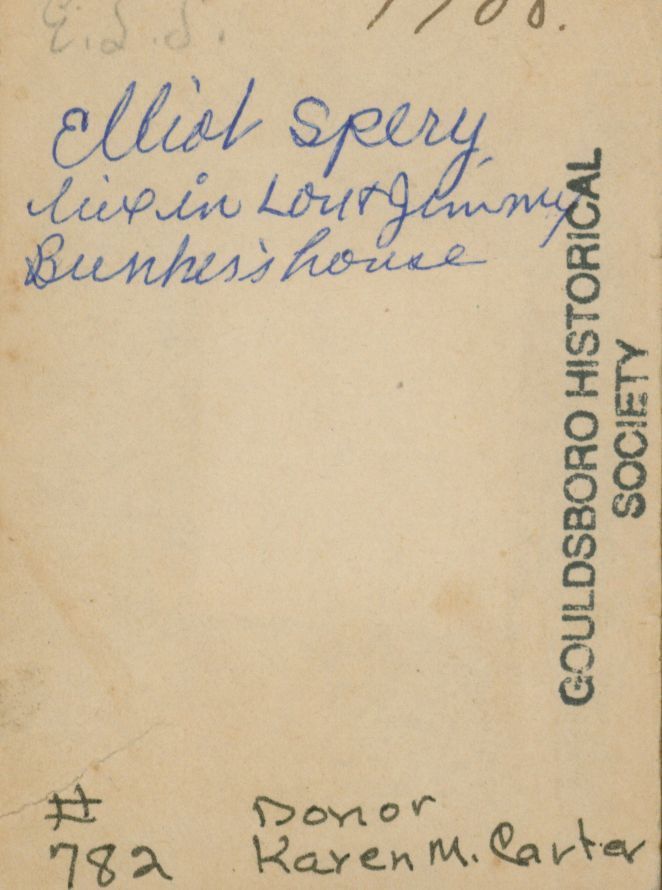 E.S.S.
Elliot Spery
live in Lou + Jimmy
Bunker's house
GOULDSBORO HISTORICAL
SOCIETY
# Donor
782 Karen M. Carter